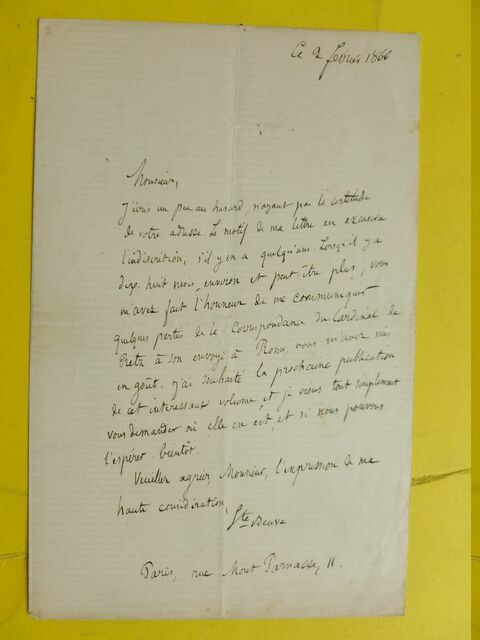 Ce 2 février 1866
Monsieur,
J'écris un peu au hasard, n'ayant pas la certitude
de votre adresse. Le motif de ma lettre en excusera
l'indiscrétion, s'il y en a quelqu'une. Lorsqu'il y a
dix-huit mois environ et peut-être plus, vous
m'avez fait l'honneur de me communiquer
quelques parties de la Correspondance du Cardinal de
Retz à son envoyé à Rome, vous m'avez mis
en goût. J'ai souhaité la prochaine publication
de cet intéressant volume, et je viens tout simplement
vous demander où elle en est, et si nous pouvons
l'espérer bientôt.
Veuillez agréer, Monsieur, l'expression de ma
haute considération,
Ste Beuve
Paris, rue Mont Parnasse, 11.